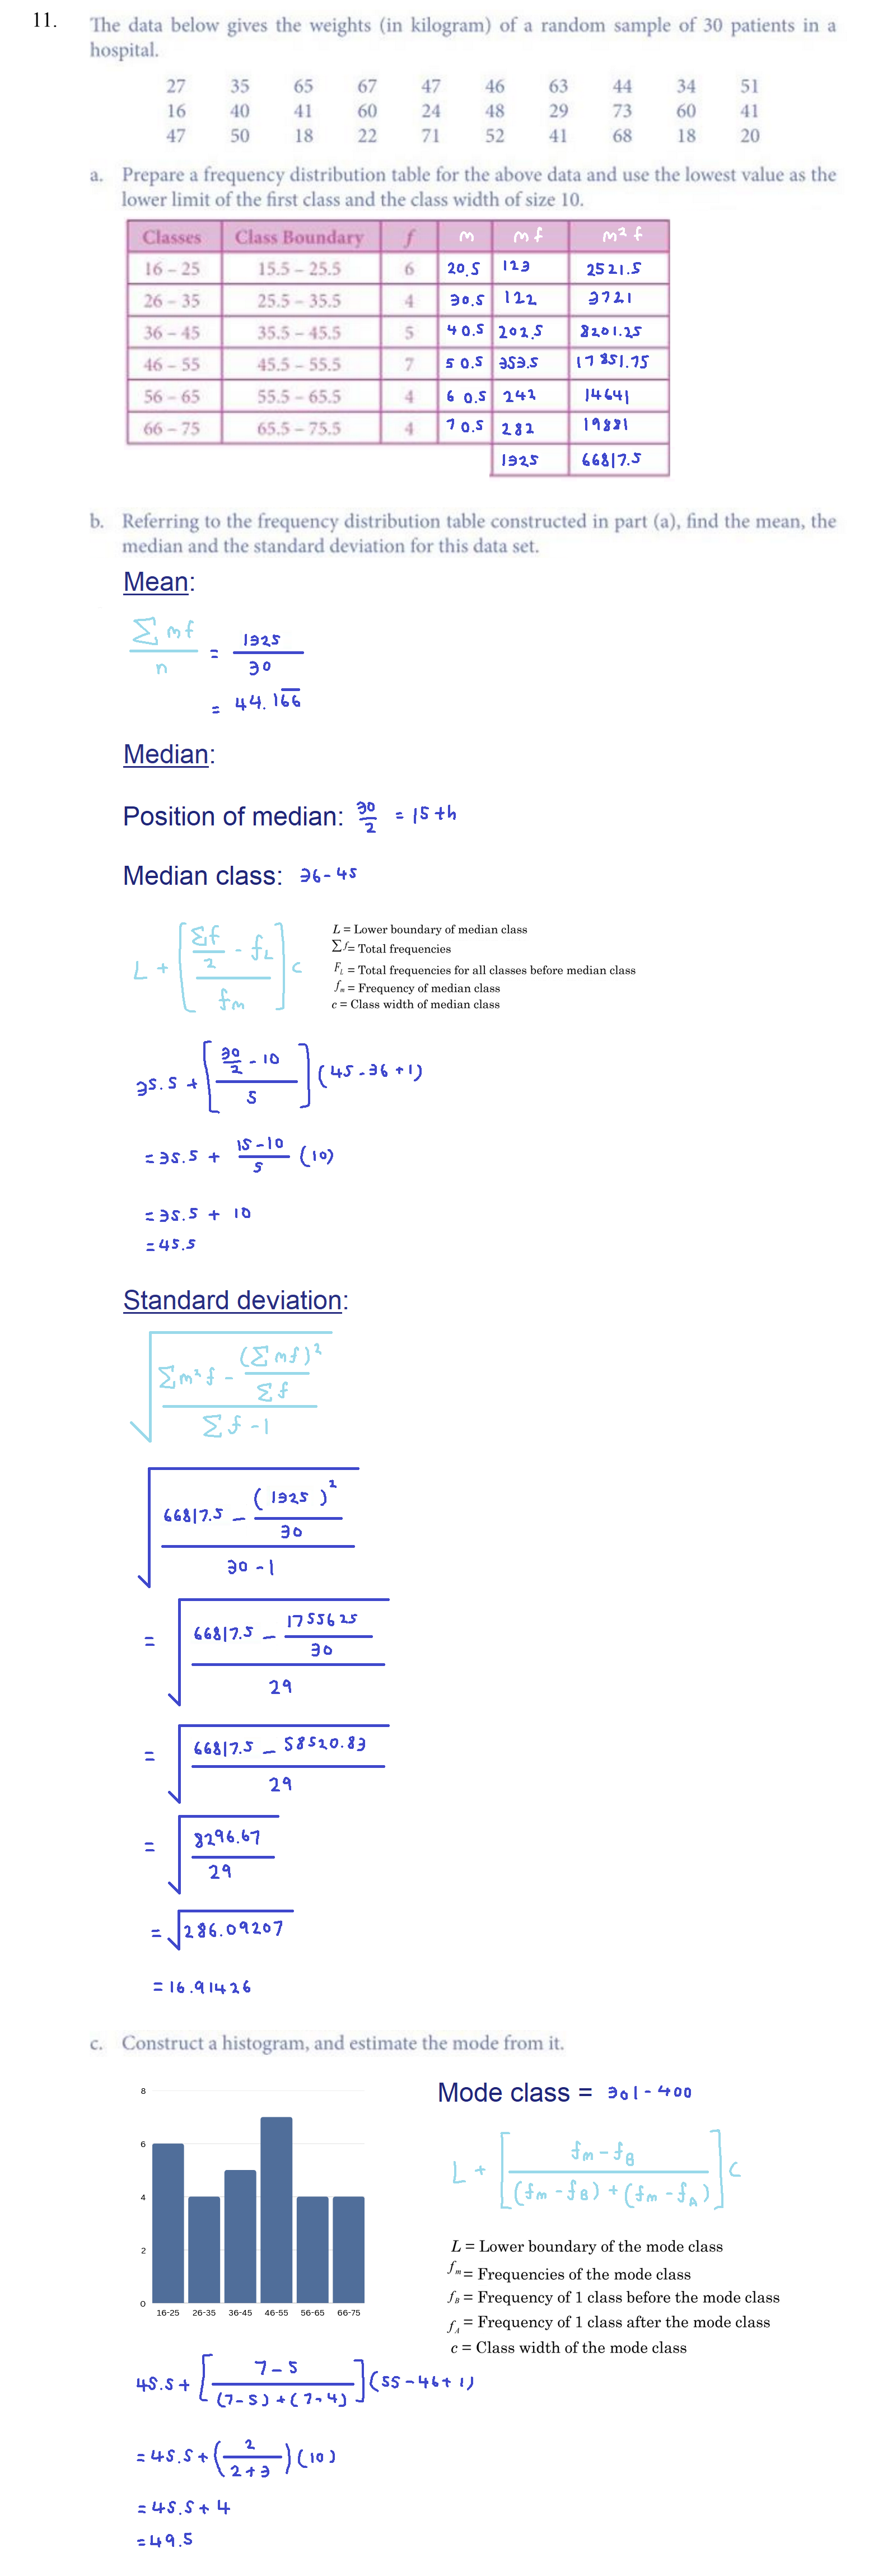 11. The data below gives the weights (in kilogram) of a random sample of 30 patients in a
hospital.
27 35 65 67 47 46 63 44 34 51
16 40 41 60 24 48 29 73 60 41
47 50 18 22 71 52 41 68 18 20
a. Prepare a frequency distribution table for the above data and use the lowest value as the
lower limit of the first class and the class width of size 10.
Classes Class Boundary f m mf m² f
16 – 25 15.5 – 25.5 6 20.5 123 2521.5
26 – 35 25.5 – 35.5 4 30.5 122 3721
36 – 45 35.5 – 45.5 5 40.5 202.5 8201.25
46 – 55 45.5 – 55.5 7 50.5 353.5 17851.75
56 – 65 55.5 – 65.5 4 60.5 242 14641
66 – 75 65.5 – 75.5 4 70.5 282 19881
1325 66817.5
b. Referring to the frequency distribution table constructed in part (a), find the mean, the
median and the standard deviation for this data set.
Mean:
∑mf / n = 1325 / 30
= 44.166
Median:
Position of median: 30/2 = 15th
Median class: 36-45
L + [(∑f/2 - fL) / fm] c
L = Lower boundary of median class
∑f = Total frequencies
FL = Total frequencies for all classes before median class
fm = Frequency of median class
c = Class width of median class
35.5 + [(30/2 - 10) / 5] (45-36+1)
= 35.5 + (15-10)/5 (10)
= 35.5 + 10
= 45.5
Standard deviation:
√((∑m²f - (∑mf)²/∑f) / (∑f - 1))
√((66817.5 - (1325)²/30) / (30 - 1))
= √((66817.5 - 1755625/30) / 29)
= √((66817.5 - 58520.83) / 29)
= √(8296.67 / 29)
= √286.09207
= 16.91426
c. Construct a histogram, and estimate the mode from it.
8
6
4
2
0
16-25 26-35 36-45 46-55 56-65 66-75
Mode class = 301-400
L + [(fm - fB) / ((fm - fB) + (fm - fA))] c
L = Lower boundary of the mode class
fm = Frequencies of the mode class
fB = Frequency of 1 class before the mode class
fA = Frequency of 1 class after the mode class
c = Class width of the mode class
45.5 + [(7-5) / ((7-5) + (7-4))] (55-46+1)
= 45.5 + (2 / (2+3)) (10)
= 45.5 + 4
= 49.5